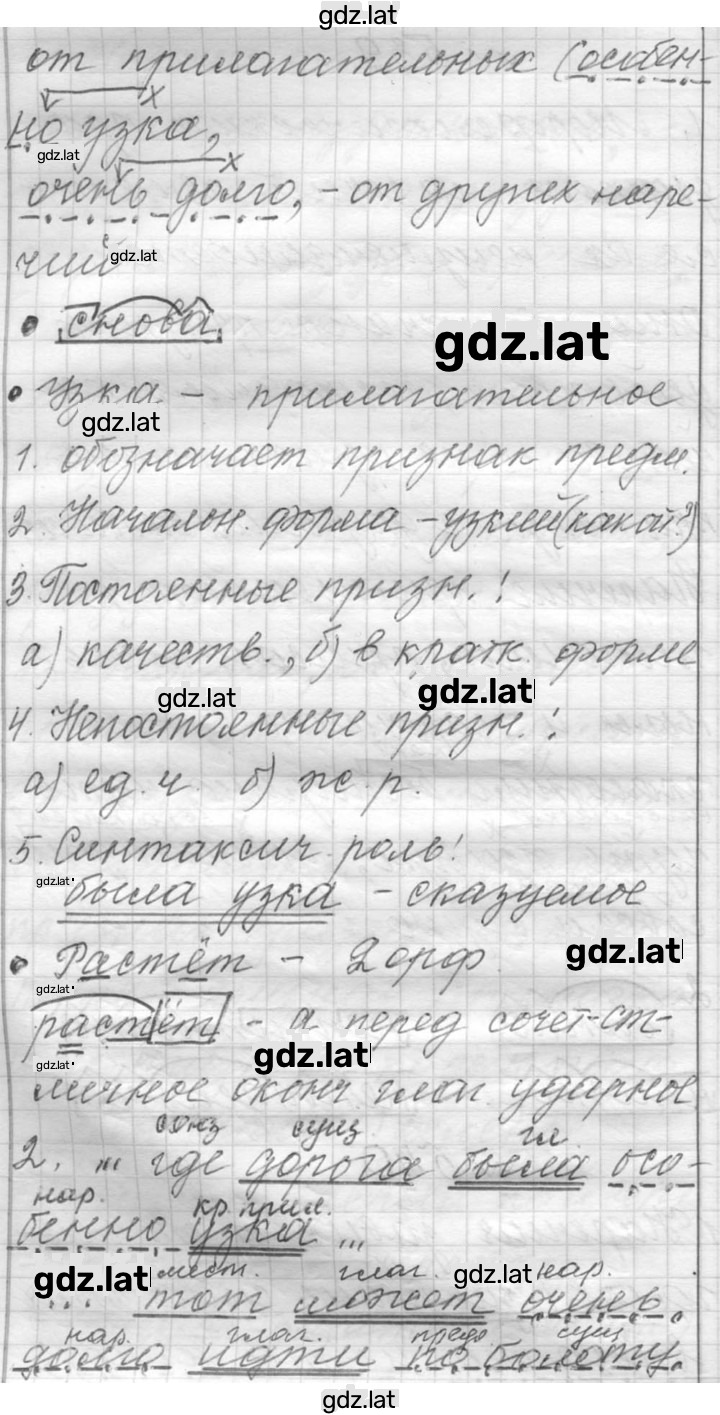 gdz.lat
от прилагательных (особен-
но узка,
gdz.lat
очень долго, - от других наре-
чий
gdz.lat
• снова
gdz.lat
• узка - прилагательное
gdz.lat
1. обозначает признак предм.
2. Начальн. форма - узкий (какой?)
3. Постоянные призн.:
а) качеств., б) в кратк. форме
gdz.lat
gdz.lat
4. Непостоянные призн.:
а) ед.ч. б) ж.р.
5. Синтаксич. роль:
gdz.lat
была узка - сказуемое
• Растёт - 2 орф
gdz.lat
gdz.lat
растёт - а перед сочет-ст-
gdz.lat
gdz.lat
личное оконч глаг ударное
союз сущ гл
2. ... где дорога была осо-
нар. кр. прил.
бенно узка ...
gdz.lat
мест. глаг. gdz.lat нар.
... тот может очень
нар. глаг. предл сущ
долго идти по болоту
gdz.lat